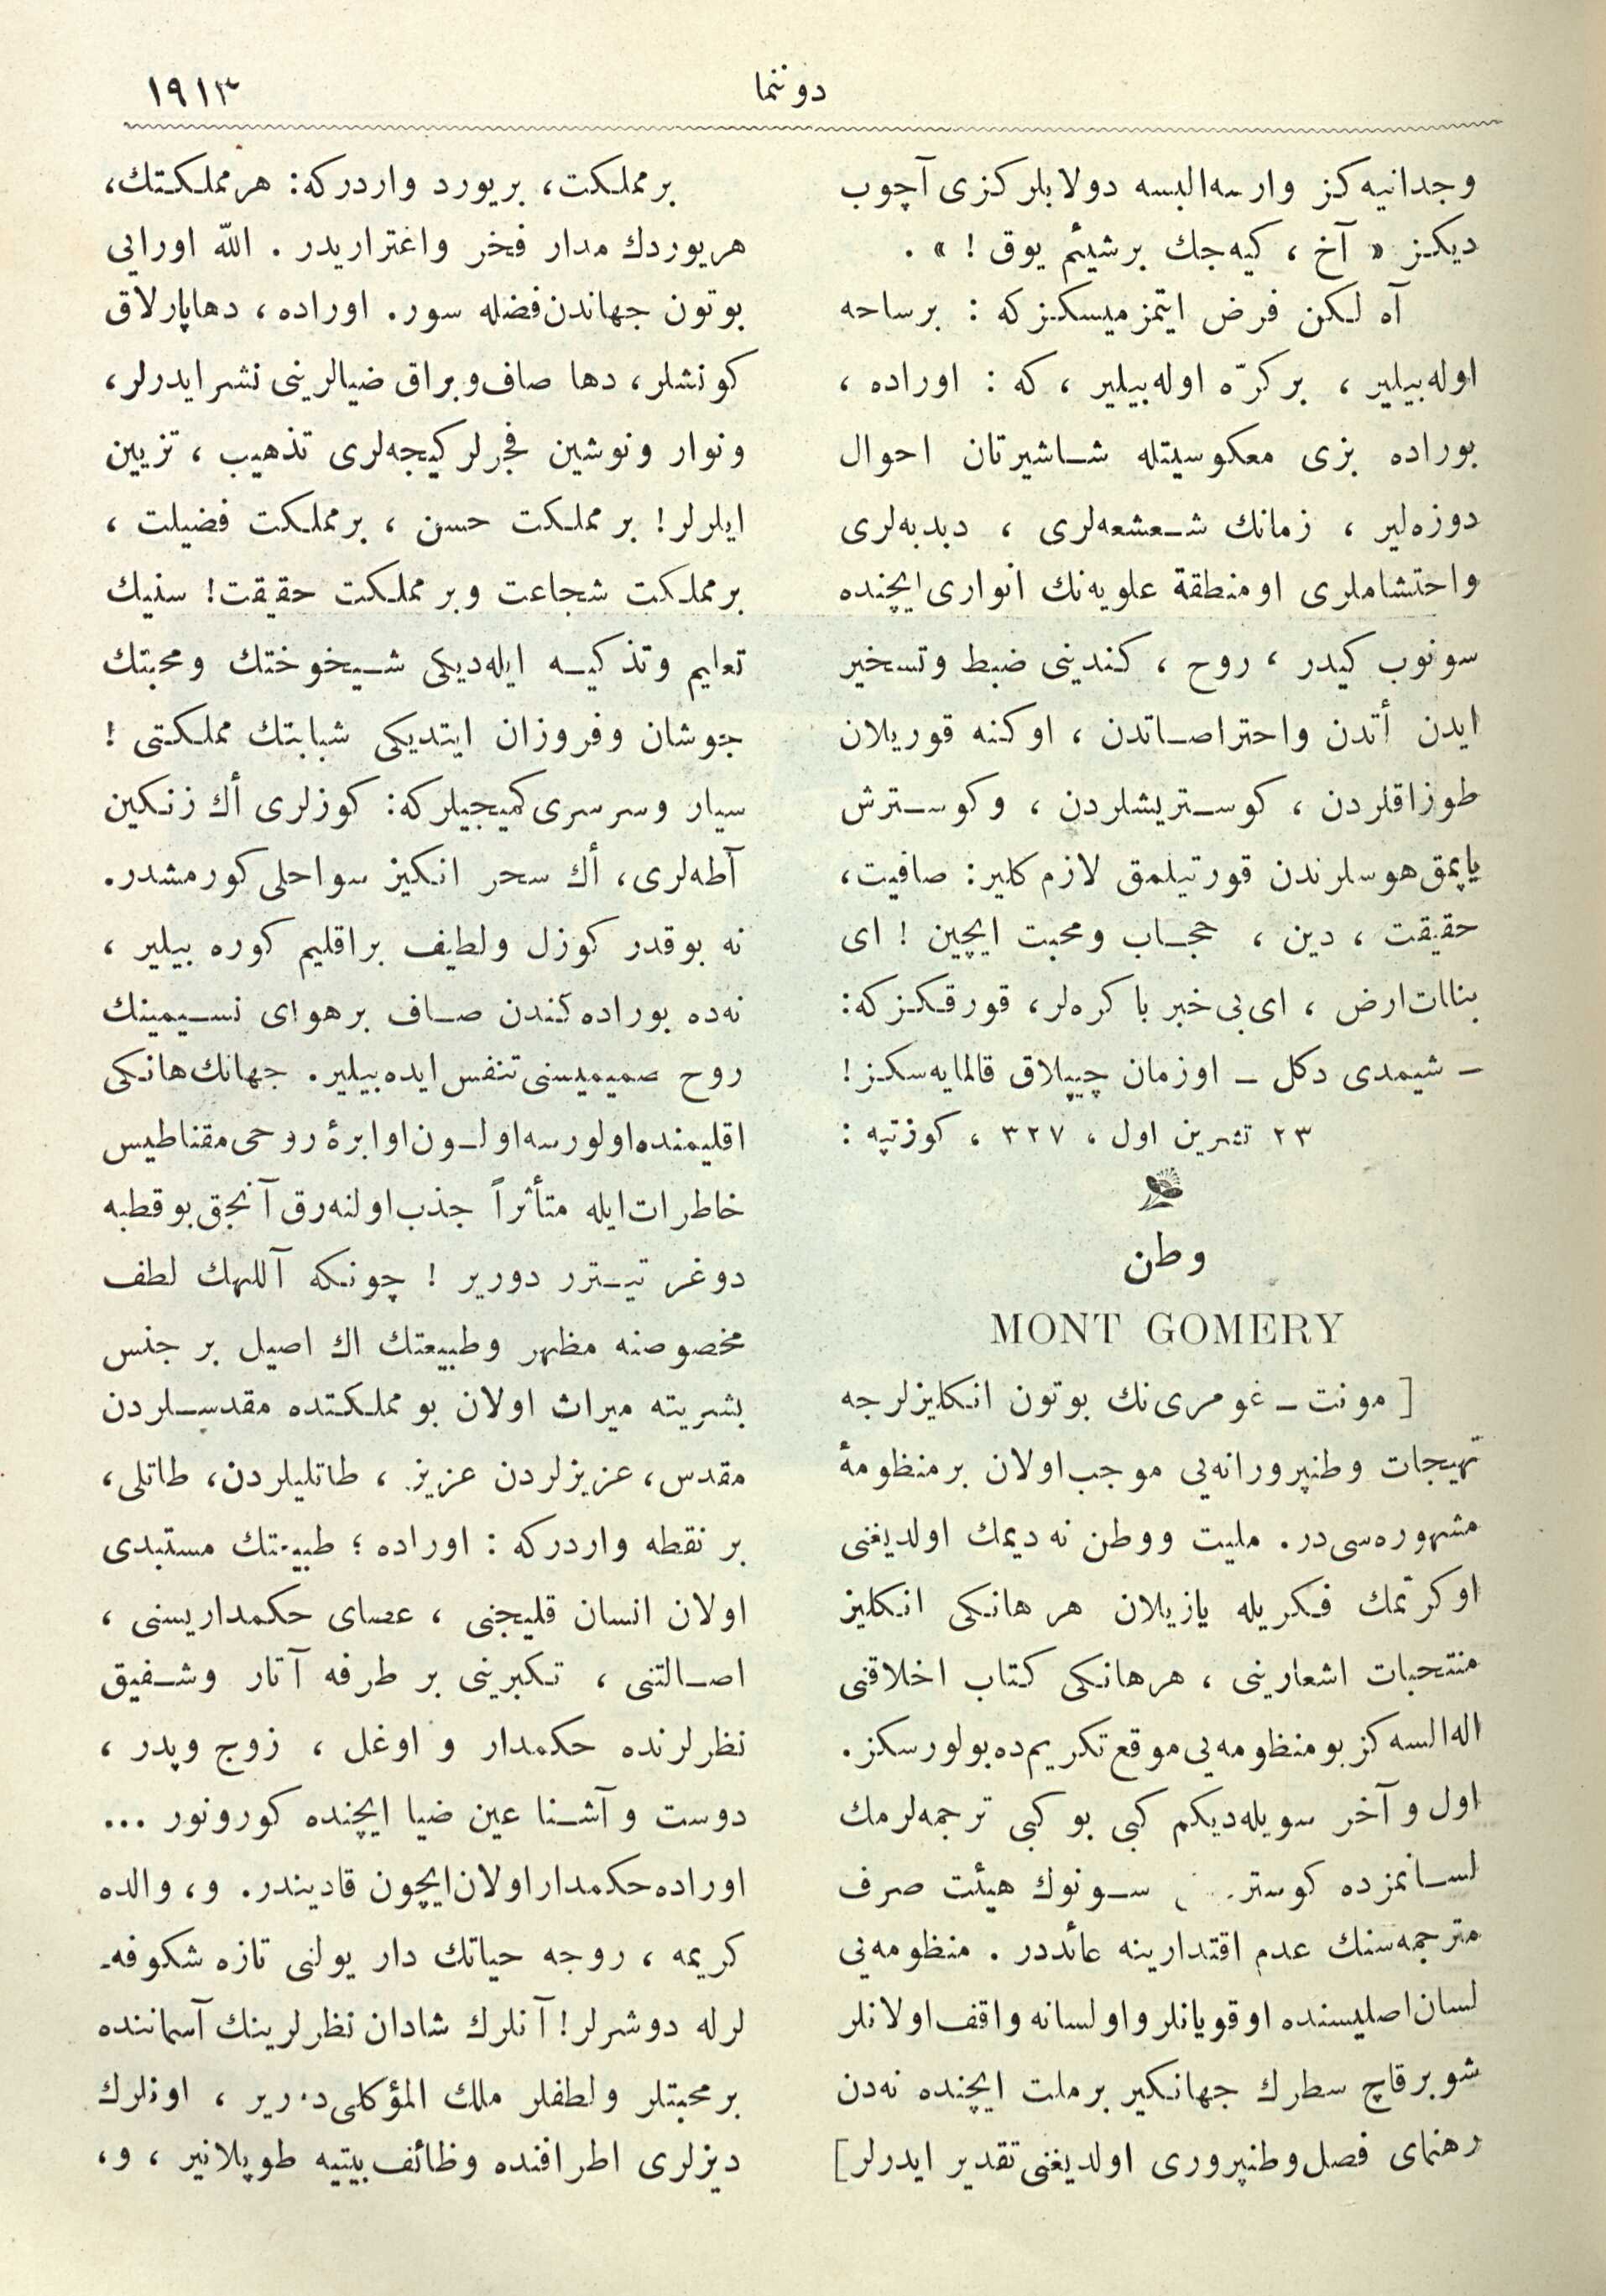 دوننما
١٩١٣
وجدانیه‌كز وارسه‌البسه دولابلركزی آچوب
دیكز « آخ ، كیه‌جك برشیئم یوق ! » .
آه لكن فرض ایتمزمیسكزكه : برساحه
اوله‌بیلیر ، بركرّه اوله‌بیلیر ، كه : اوراده ،
بوراده بزی معكوسیتله شاشیرتان احوال
دوزه‌لیر ، زمانك شعشعه‌لری ، دبدبه‌لری
واحتشاملری اومنطقۀ علویه‌نك انواری‌ایچنده
سونوب كیدر ، روح ، كندینی ضبط وتسخیر
ایدن أتدن واحتراصاتدن ، اوكنه قوریلان
طوزاقلردن ، كوستریشلردن ، وكوسترش
یاپمق‌هوسلرندن قورتیلمق لازم كلیر: صافیت،
حقیقت ، دین ، حجاب ومحبت ایچین ! ای
بنات‌ارض ، ای‌بی‌خبر باكره‌لر، قورقكزكه:
ـ شیمدی دكل ـ اوزمان چیپلاق قالمایه‌سكز!
٢٣ تشرین اول ، ٣٢٧ ، كوزتپه :
وطن
MONT GOMERY
[ مونت ـ غومری‌نك بوتون انكلیزلرجه
تهیجات وطنپرورانه‌یی موجب‌اولان برمنظومۀ
مشهوره‌سی‌در. ملیت ووطن نه دیمك اولدیغنی
اوكرتمك فكریله یازیلان هرهانكی انكلیز
منتحبات اشعارینی ، هرهانكی كتاب اخلاقنی
اله‌السه‌كز بومنظومه‌یی‌موقع‌تكریم‌ده‌بولورسكز.
اول وآخر سویله‌دیكم كبی بو كبی ترجمه‌لرمك
لسانمزده سونوك هیئت صرف
مترجمه‌سنك عدم اقتدارینه عائددر . منظومه‌یی
لسان‌اصلیسنده اوقویانلر واولسانه واقف‌اولانلر
شوبرقاچ سطرك جهانكیر برملت ایچنده نه‌دن
رهنمای فصل‌وطنپروری اولدیغنی تقدیر ایدرلر]
برمملكت، بریورد واردركه: هرمملكتك،
هریوردك مدار فخر واغتراریدر . اللّٰه اورایی
بوتون جهاندن‌فضله سور. اوراده، دهاپارلاق
كونشلر، دها صاف‌وبراق ضیالرینی نشرایدرلر،
ونوار ونوشین فجرلر كیجه‌لری تذهیب ، تزیین
ایلرلر! بر مملكت حسن ، برمملكت فضیلت ،
برمملكت شجاعت وبرمملكت حقیقت! سنیك
تعلیم وتذكیه ایله‌دیكی شیخوختك ومحبتك
جوشان وفروزان ایتدیكی شبابتك مملكتی !
سیار وسرسری‌كمیجیلركه: كوزلری أك زنكین
آطه‌لری، أك سحر انكیز سواحلی كورمشدر.
نه بوقدر كوزل ولطیف براقلیم كوره بیلیر ،
نه‌ده بوراده‌كندن صاف برهوای نسیمینك
روح صمیمیسنی‌تنفس‌ایده‌بیلیر. جهانك‌هانكی
اقلیمنده‌اولورسه‌اولسون‌اوابرۀ روحی‌مقناطیس
خاطرات‌ایله متأثراً جذب‌اولنه‌رق آنجق‌بوقطبه
دوغر تیترر دوریر ! چونكه آللهك لطف
مخصوصنه مظهر وطبیعتك اك اصیل بر جنس
بشریته میراث اولان بو مملكتده مقدسلردن
مقدس، عزیزلردن عزیز ، طاتلیلردن، طاتلی،
بر نقطه واردركه : اوراده ؛ طبیعتك مستبدی
اولان انسان قلیجنی ، عصای حكمداریسنی ،
اصالتنی ، تكبرینی بر طرفه آتار وشفیق
نظرلرنده حكمدار و اوغل ، زوج وپدر ،
دوست وآشنا عین ضیا ایچنده كورونور ...
اوراده‌حكمداراولان‌ایچون قادیندر. و، والده
كریمه ، روجه حیاتك دار یولنی تازه شكوفه‌ـ
لرله دوشرلر! آنلرك شادان نظرلرینك آسماننده
برمحبتلر ولطفلر ملك المؤكلی ، اونلرك
دیزلری اطرافنده وظائف‌بیتیه طوپلانیر ، و،